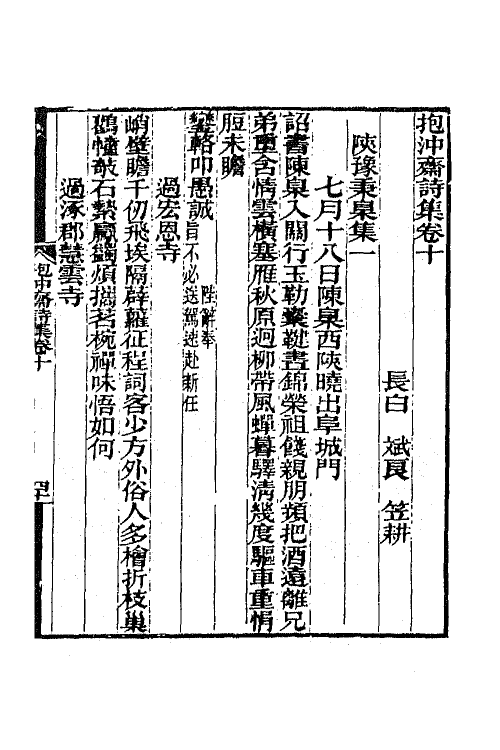 抱沖齋詩集卷十
長白 斌良 笠耕
陝豫秉臬集一
七月十八日陳臬西陝曉出阜城門
詔書陳臬入關行玉勒橐鞬晝錦榮祖餞親朋頻把酒遠離兄
弟重含情雲橫塞雁秋原迥柳帶風蟬暮驛淸幾度驅車重悁
脰未瞻
鑾輅叩愚誠陛辭奉旨不必送駕速赴新任
過宏恩寺
峭壁瞻千仞飛埃隔薜蘿征程詞客少方外俗人多檜折枝巢
鸛幢敧石蟄黿蠲煩攜茗椀禪味悟如何
過涿郡慧雲寺
抱沖齋詩集卷十